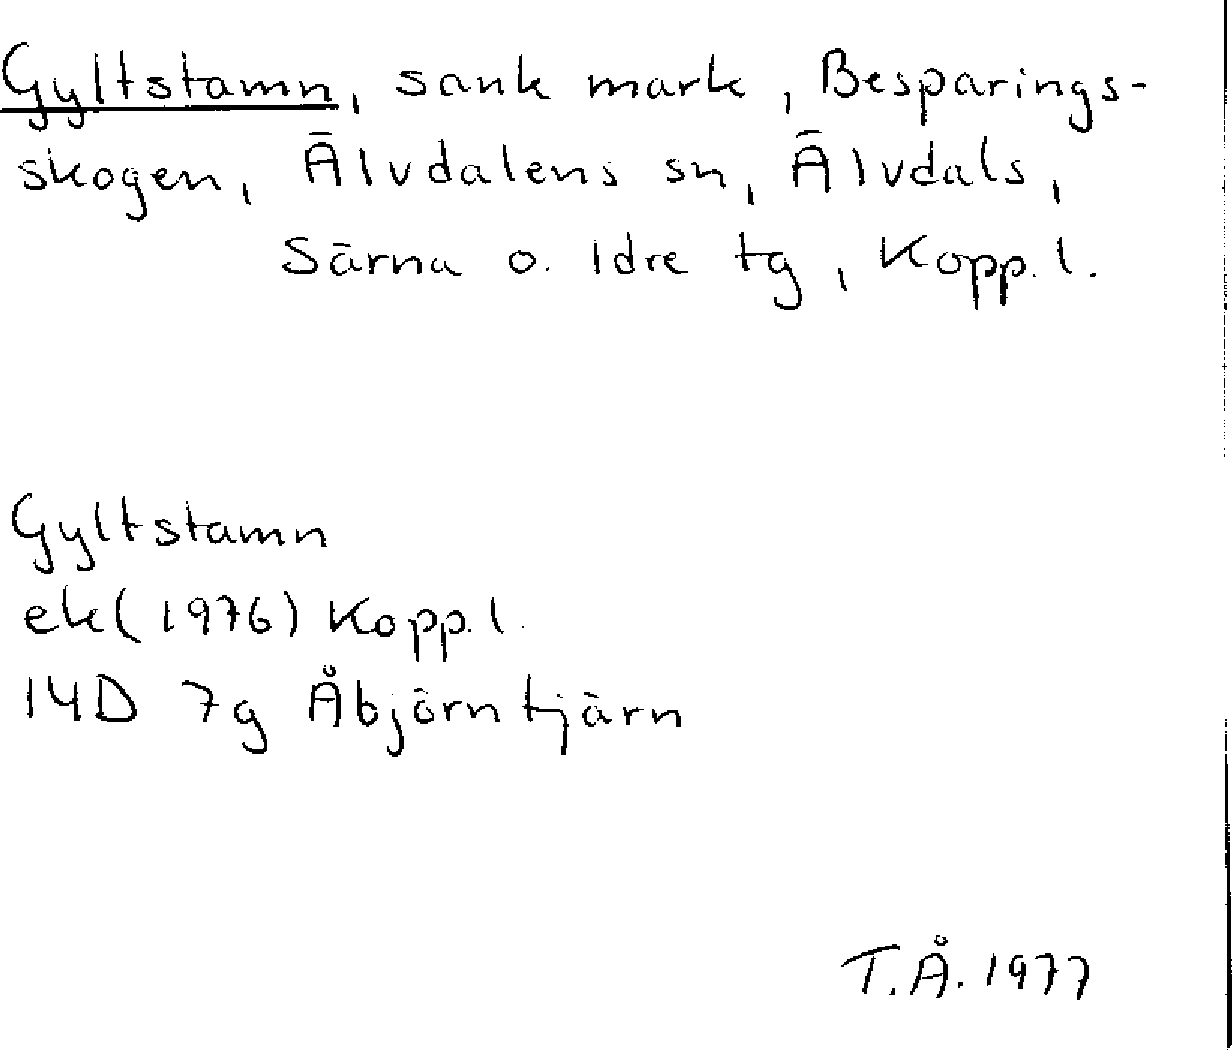 Gyltstamn, sank mark, Besparings-
skogen, Älvdalens sn, Älvdals,
Särna o. Idre tg, Kopp. l.
Gyltstamn
ek (1976) Kopp. l.
14D 7g Åbjörntjärn
T.Å. 1977